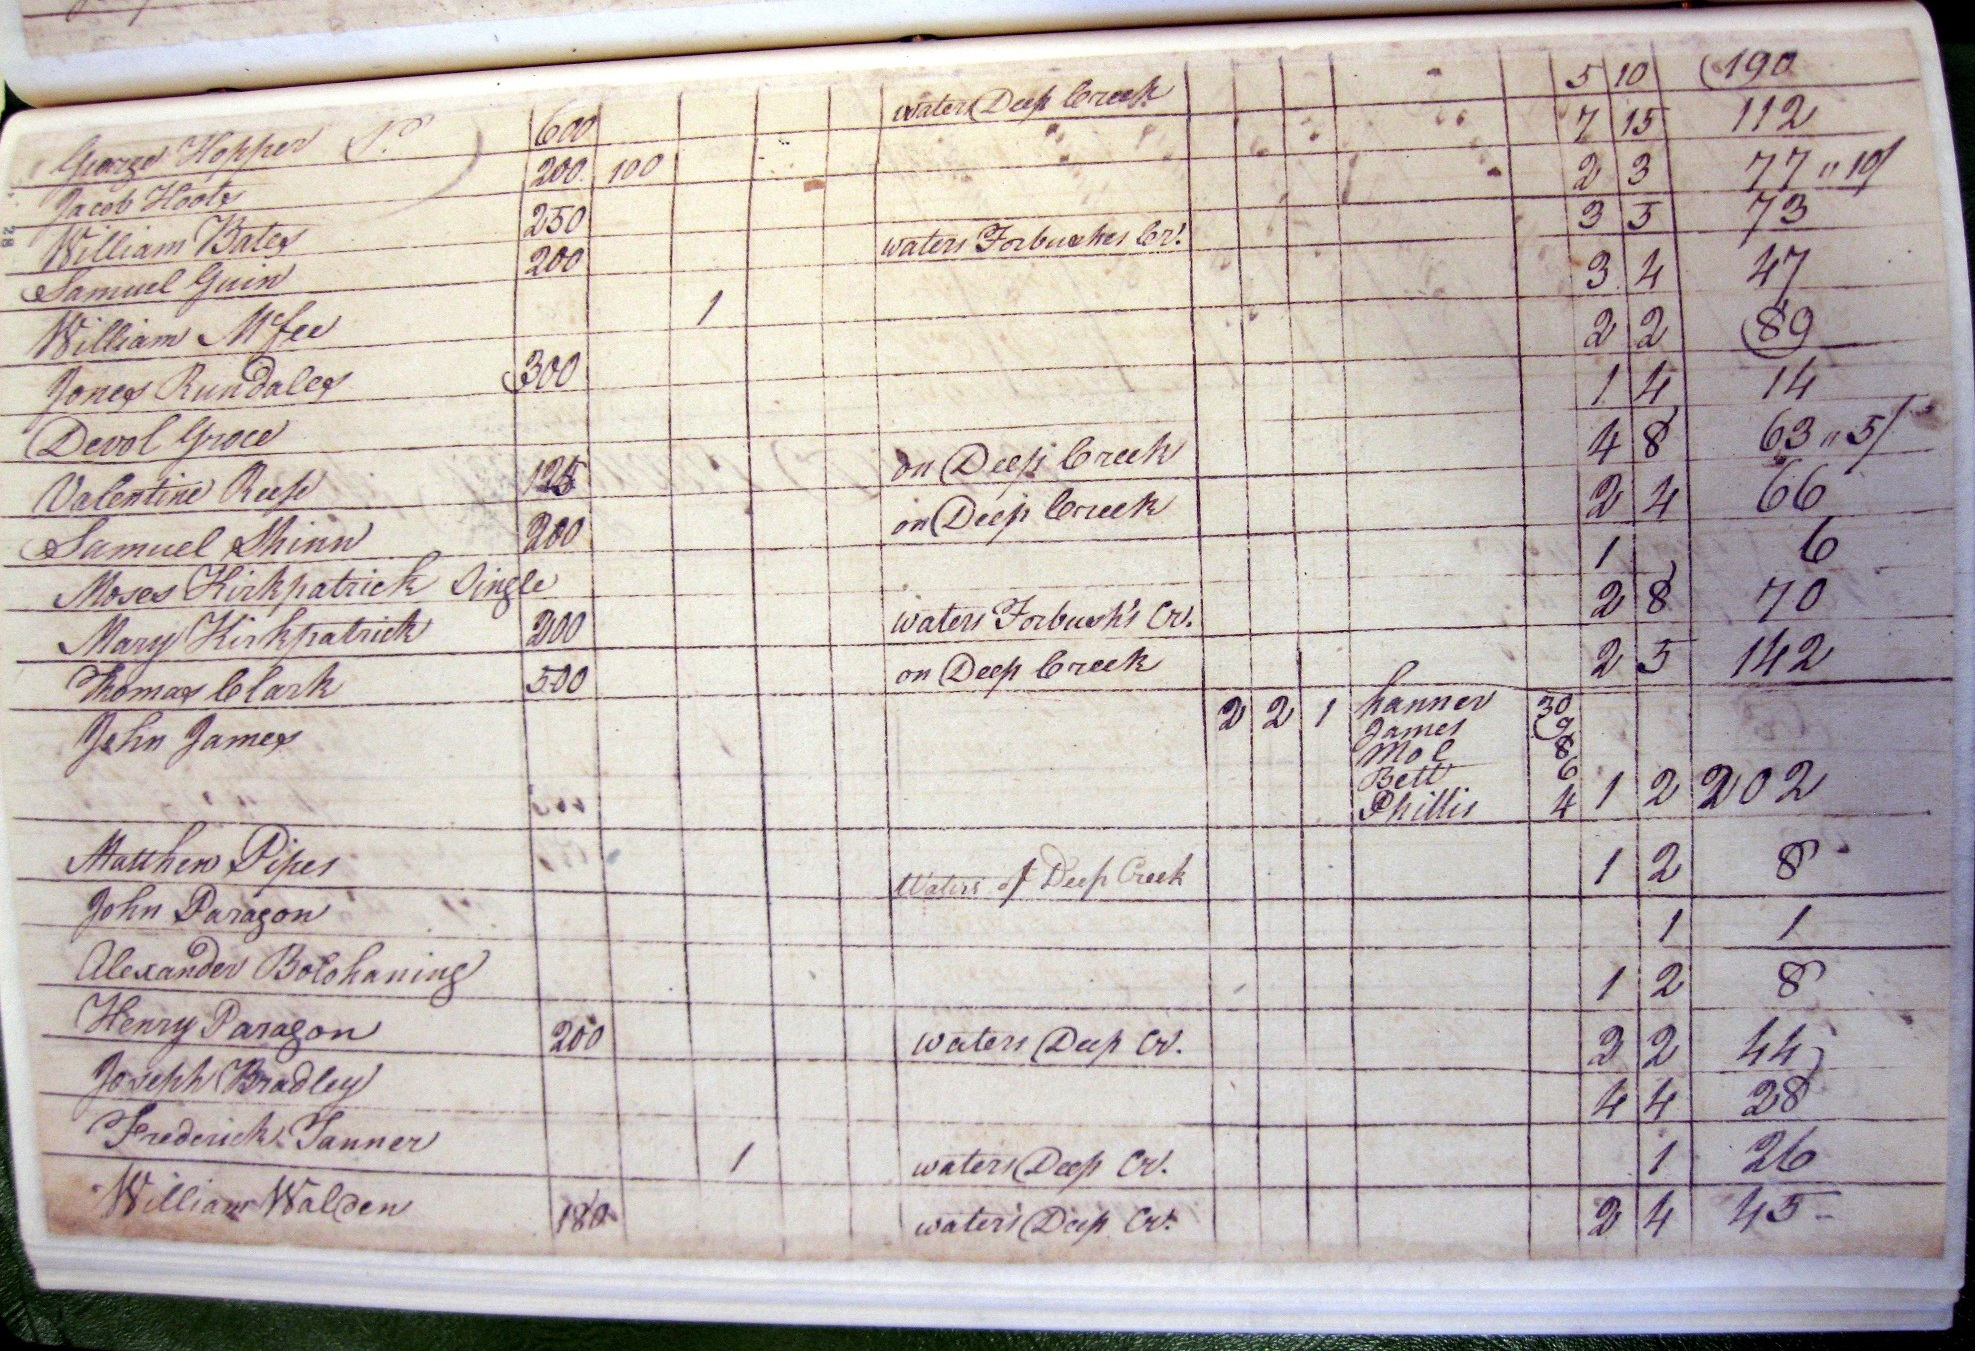 George Hopper 600 waters Deep Creek 5 10 190
Jacob Hoots 200 100 7 15 112
William Bates 250 2 3 77 " 10/
Samuel Guin 200 waters Forbushes Cr. 3 5 73
William McFee 1 3 4 47
Jones Rundales 300 2 2 89
Devol Groce 1 4 14
Valentine Reep 125 on Deep Creek 4 8 63 " 5/
Samuel Shinn 200 on Deep Creek 2 4 66
Moses Kirkpatrick Single 1 6
Mary Kirkpatrick 200 waters Forbush's Cr. 2 8 70
Thomas Clark 500 on Deep Creek 2 5 142
John James 2 2 1 hanner 30
James 9
Mol 8
Bett 6
Phillis 4 1 2 202
Matthew Pipes Waters of Deep Creek 1 2 8
John Paragon 1 1
Alexander Bolohaning 1 2 8
Henry Paragon 200 waters Deep Cr. 2 2 44
Joseph Bradley 4 4 28
Frederick Tanner 1 waters Deep Cr. 1 26
William Walden 180 waters Deep Cr. 2 4 45